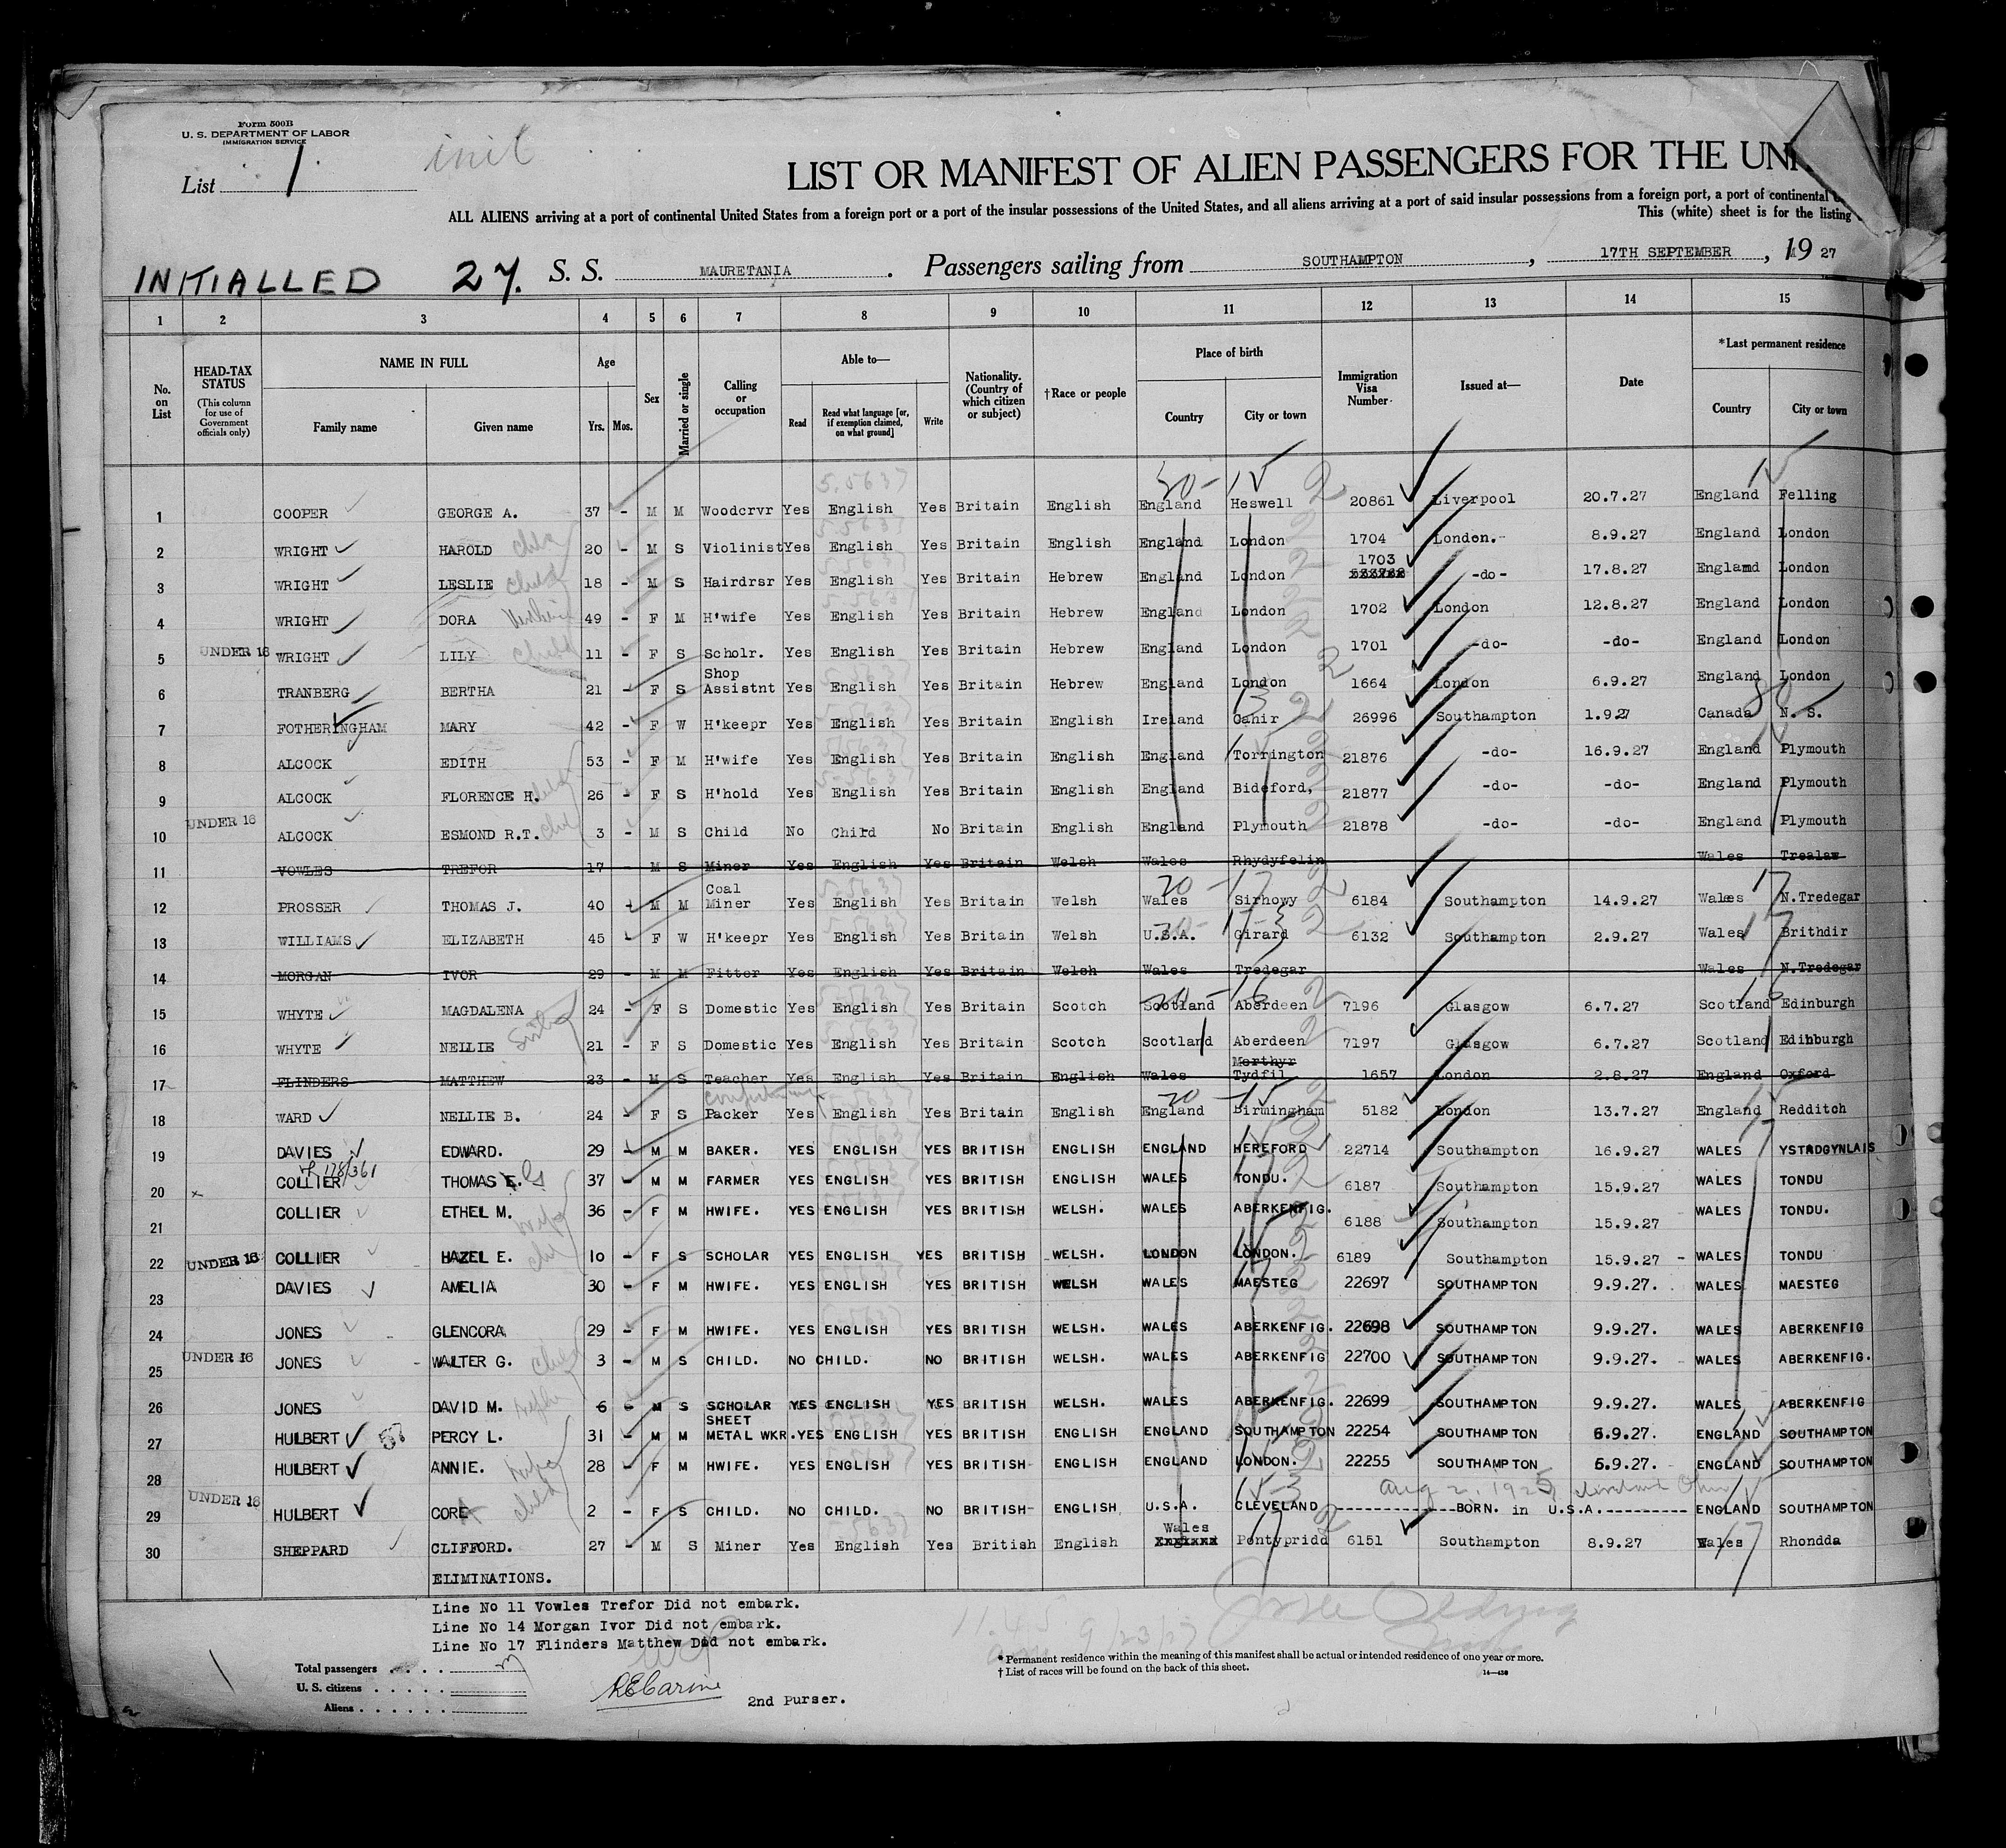 Form 500B
U. S. DEPARTMENT OF LABOR
IMMIGRATION SERVICE
List 1. init
LIST OR MANIFEST OF ALIEN PASSENGERS FOR THE UNI
ALL ALIENS arriving at a port of continental United States from a foreign port or a port of the insular possessions of the United States, and all aliens arriving at a port of said insular possessions from a foreign port, a port of continental
This (white) sheet is for the listing
INITIALLED 27. S. S. MAURETANIA . Passengers sailing from SOUTHAMPTON , 17TH SEPTEMBER , 19 27
1 2 3 4 5 6 7 8 9 10 11 12 13 14 15
No. on List HEAD-TAX STATUS (This column for use of Government officials only) NAME IN FULL Family name Given name Age Yrs. Mos. Sex Married or single Calling or occupation Able to— Read Read what language [or, if exemption claimed, on what ground] Write Nationality. (Country of which citizen or subject) †Race or people Place of birth Country City or town Immigration Visa Number Issued at— Date *Last permanent residence Country City or town
1 COOPER GEORGE A. 37 - M M Woodcrvr Yes English Yes Britain English England Heswell 20861 Liverpool 20.7.27 England Felling
2 WRIGHT HAROLD 20 - M S Violinist Yes English Yes Britain English England London 1704 London. 8.9.27 England London
3 WRIGHT LESLIE child 18 - M S Hairdrsr Yes English Yes Britain Hebrew England London 1703 -do- 17.8.27 England London
4 WRIGHT DORA 49 - F M H'wife Yes English Yes Britain Hebrew England London 1702 London 12.8.27 England London
5 UNDER 16 WRIGHT LILY child 11 - F S Scholr. Yes English Yes Britain Hebrew England London 1701 -do- -do- England London
6 TRANBERG BERTHA 21 - F S Shop Assistnt Yes English Yes Britain Hebrew England London 1664 London 6.9.27 England London
7 FOTHERINGHAM MARY 42 - F W H'keepr Yes English Yes Britain English Ireland Cahir 26996 Southampton 1.9.27 Canada N. S.
8 ALCOCK EDITH 53 - F M H'wife Yes English Yes Britain English England Torrington 21876 -do- 16.9.27 England Plymouth
9 ALCOCK FLORENCE H. 26 - F S H'hold Yes English Yes Britain English England Bideford, 21877 -do- -do- England Plymouth
10 UNDER 16 ALCOCK ESMOND R.T. 3 - M S Child No Child No Britain English England Plymouth 21878 -do- -do- England Plymouth
11 VOWLES TREFOR 17 - M S Miner Yes English Yes Britain Welsh Wales Rhydyfelin Wales Trealaw
12 PROSSER THOMAS J. 40 - M M Coal Miner Yes English Yes Britain Welsh Wales Sirhowy 6184 Southampton 14.9.27 Wales N.Tredegar
13 WILLIAMS ELIZABETH 45 - F W H'keepr Yes English Yes Britain Welsh U.S.A. Girard 6132 Southampton 2.9.27 Wales Brithdir
14 MORGAN IVOR 29 - M M Fitter Yes English Yes Britain Welsh Wales Tredegar Wales N.Tredegar
15 WHYTE MAGDALENA 24 - F S Domestic Yes English Yes Britain Scotch Scotland Aberdeen 7196 Glasgow 6.7.27 Scotland Edinburgh
16 WHYTE NELLIE 21 - F S Domestic Yes English Yes Britain Scotch Scotland Aberdeen 7197 Glasgow 6.7.27 Scotland Edinburgh
17 FLINDERS MATTHEW 23 - M S Teacher Yes English Yes Britain English Wales Merthyr Tydfil 1657 London 2.8.27 England Oxford
18 WARD NELLIE B. 24 - F S Packer Yes English Yes Britain English England Birmingham 5182 London 13.7.27 England Redditch
19 DAVIES EDWARD. 29 - M M BAKER. YES ENGLISH YES BRITISH ENGLISH ENGLAND HEREFORD 22714 Southampton 16.9.27 WALES YSTRDGYNLAIS
20 COLLIER THOMAS 37 - M M FARMER YES ENGLISH YES BRITISH ENGLISH WALES TONDU. 6187 Southampton 15.9.27 WALES TONDU
21 COLLIER ETHEL M. wife 36 - F M HWIFE. YES ENGLISH YES BRITISH WELSH. WALES ABERKENFIG. 6188 Southampton 15.9.27 WALES TONDU.
22 UNDER 16 COLLIER HAZEL E. 10 - F S SCHOLAR YES ENGLISH YES BRITISH WELSH. LONDON LONDON. 6189 Southampton 15.9.27 - WALES TONDU
23 DAVIES AMELIA 30 - F M HWIFE. YES ENGLISH YES BRITISH WELSH WALES MAESTEG 22697 SOUTHAMPTON 9.9.27. WALES MAESTEG
24 JONES GLENCORA 29 - F M HWIFE. YES ENGLISH YES BRITISH WELSH. WALES ABERKENFIG. 22698 SOUTHAMPTON 9.9.27. WALES ABERKENFIG
25 UNDER 16 JONES WALTER G. child 3 - M S CHILD. NO CHILD. NO BRITISH WELSH. WALES ABERKENFIG 22700 SOUTHAMPTON 9.9.27. WALES ABERKENFIG.
26 JONES DAVID M. 6 - M S SCHOLAR YES ENGLISH YES BRITISH WELSH. WALES ABERKENFIG. 22699 SOUTHAMPTON 9.9.27. WALES ABERKENFIG
27 HULBERT PERCY L. 31 - M M SHEET METAL WKR. YES ENGLISH YES BRITISH ENGLISH ENGLAND SOUTHAMPTON 22254 SOUTHAMPTON 6.9.27. ENGLAND SOUTHAMPTON
28 HULBERT ANNIE. 28 - F M HWIFE. YES ENGLISH YES BRITISH ENGLISH ENGLAND LONDON. 22255 SOUTHAMPTON 6.9.27. ENGLAND SOUTHAMPTON
29 UNDER 16 HULBERT CORE child 2 - F S CHILD. NO CHILD. NO BRITISH ENGLISH U.S.A. CLEVELAND BORN. in U.S.A. ENGLAND SOUTHAMPTON
30 SHEPPARD CLIFFORD. 27 - M S Miner Yes English Yes British English Wales Pontypridd 6151 Southampton 8.9.27 Wales Rhondda
ELIMINATIONS.
Line No 11 Vowles Trefor Did not embark.
Line No 14 Morgan Ivor Did not embark.
Line No 17 Flinders Matthew Did not embark.
11.45 9/23/27
Total passengers
U. S. citizens
Aliens
2nd Purser.
* Permanent residence within the meaning of this manifest shall be actual or intended residence of one year or more.
† List of races will be found on the back of this sheet.